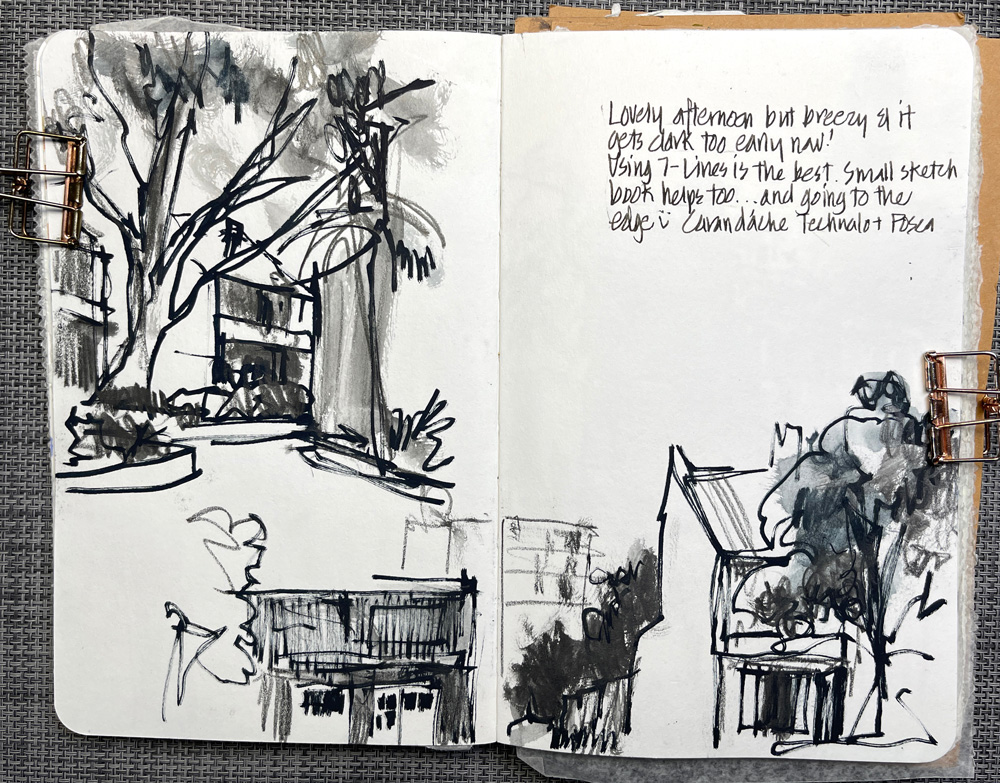 Lovely afternoon but breezy & it
gets dark too early now!
Using 7-Lines is the best. Small sketch
book helps too...and going to the
edge Carandáche Technalo + Posca